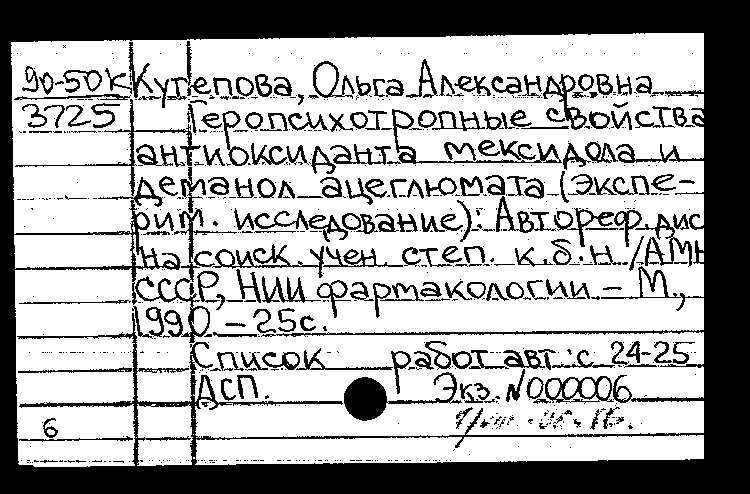 90-50к Кутепова, Ольга Александровна
3725 Геропсихотропные свойства
антиоксиданта мексидола и
деманол ацеглюмата (Экспе-
рим. исследование): Автореф. дис
на соиск. учен. степ. к.б.н. /АМН
СССР, НИИ фармакологии – М.,
1990. – 25с.
Список работ авт.: с. 24-25
ДСП. Экз. №000006
6